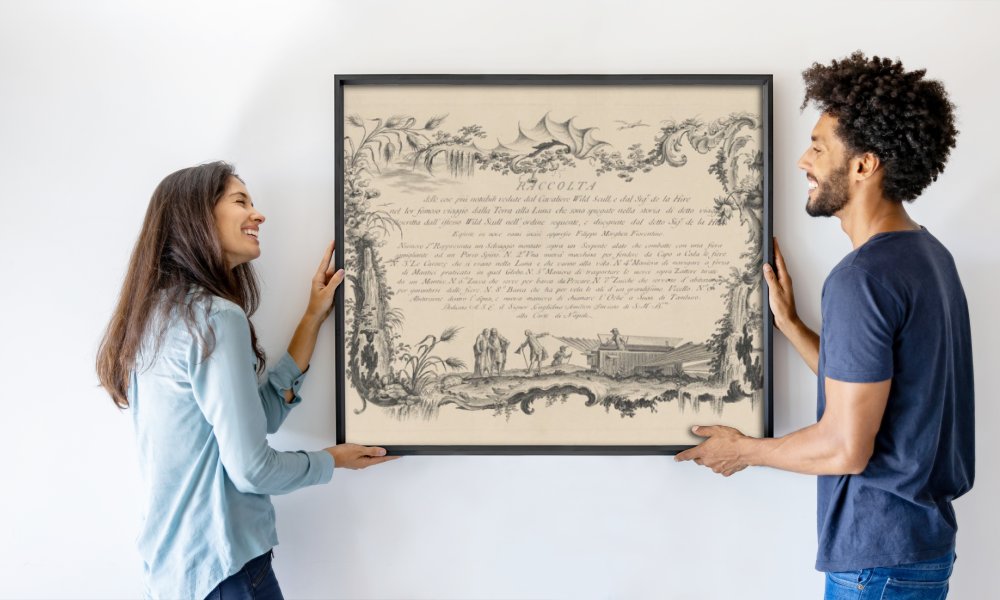 RACCOLTA
delle cose più notabili vedute dal Cavaliere Wild Scull, e dal Sigr. de la Hire
nel lor famoso viaggio dalla Terra alla Luna che sono spiegate nella storia di detto viaggio
descritta dall'istesso Wild Scull nell'ordine sequente, e disegnate dal detto Sigr. de la Hire
Esposte in nove rami incisi appresso Filippo Morghen Fiorentino.
Numero 1º Rappresenta un Selvaggio montato sopra un Serpente alato che combatte con una fiera
somigliante ad un Porco Spino. N. 2º Una nuova macchina per fendere da Capo a Coda le fiere
N. 3º Le Carozze che si usano nella Luna e che vanno alla vela. N. 4º Maniera di navigare a forza
di Mantici praticata in quel Globo. N. 5º Maniera di trasportare le merci sopra Zattere tirate
da un Mantice. N. 6º Zucca che serve per barca da Pescare. N. 7º Zucche che servono d'abitazione
per guarantirsi dalle fiere. N. 8º Barca che ha per vela le ali di un grandissimo Uccello. N. 9º
Abitazione dentro l'acqua, e nuova maniera di chiamare l'Oche a Suon di Tamburo.
Dedicata A. S. E. il Signor Guglielmo Hamilton Inviato di S. M. B.
alla Corte di Napoli.